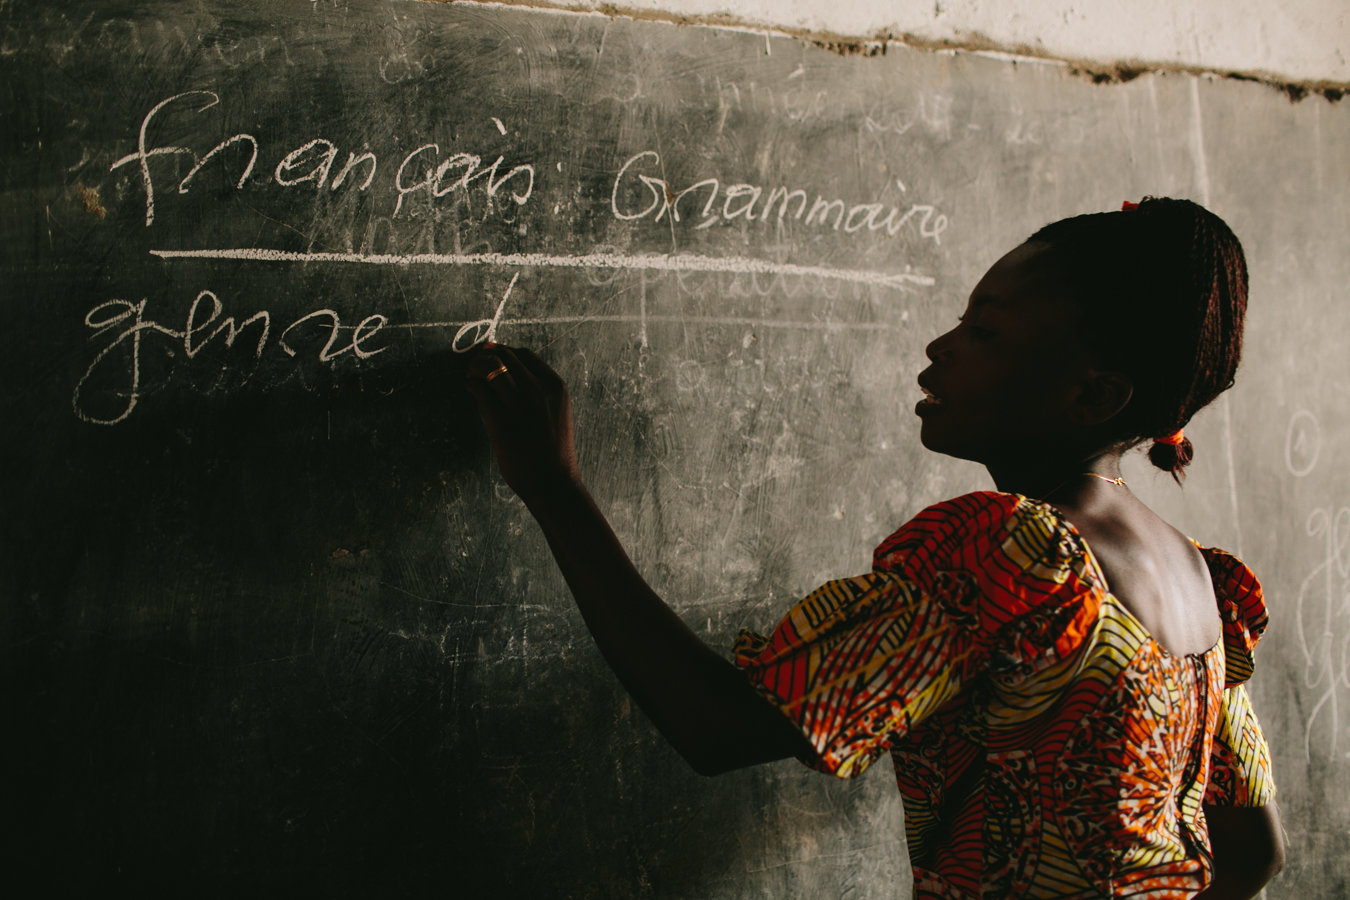 français Grammaire
genre d